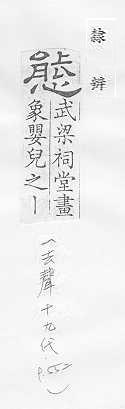 隸辨
態
武梁祠堂畫
象嬰兒之丨
(去聲十九代
P.552)